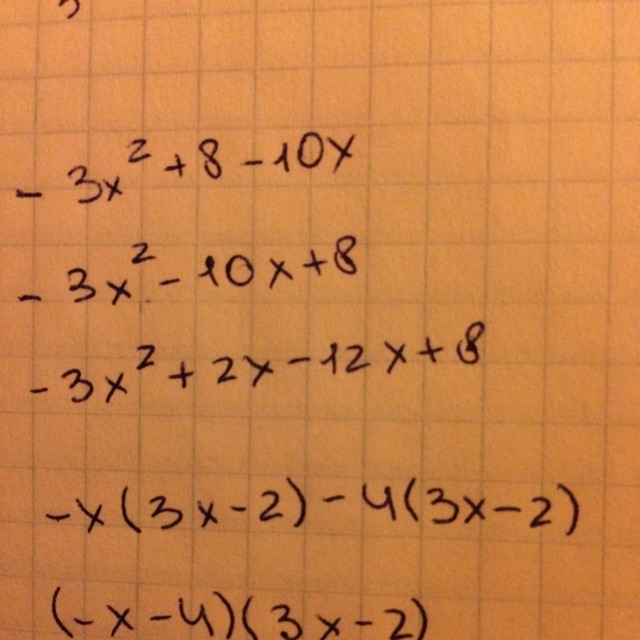 - 3x² + 8 - 10x
- 3x² - 10x + 8
- 3x² + 2x - 12x + 8
-x(3x - 2) - 4(3x - 2)
(-x - 4)(3x - 2)